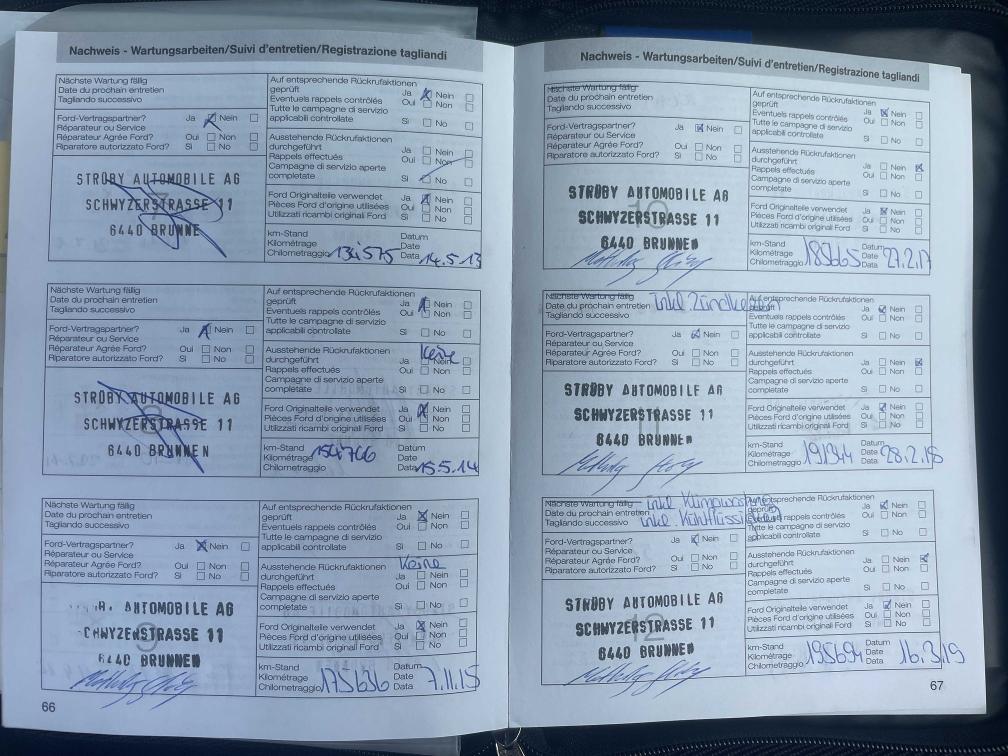 Nachweis - Wartungsarbeiten/Suivi d'entretien/Registrazione tagliandi
Nächste Wartung fällig
Date du prochain entretien
Tagliando successivo
Ford-Vertragspartner? Ja Nein
Réparateur ou Service
Réparateur Agrée Ford? Oui Non
Riparatore autorizzato Ford? Si No
STRÜBY AUTOMOBILE AG
SCHWYZERSTRASSE 11
6440 BRUNNEN
Auf entsprechende Rückrufaktionen
geprüft Ja Nein
Eventuels rappels contrôlés Oui Non
Tutte le campagne di servizio
applicabili controllate Si No
Ausstehende Rückrufaktionen
durchgeführt Ja Nein
Rappels effectués Oui Non
Campagne di servizio aperte
completate Si No
Ford Originalteile verwendet Ja Nein
Pièces Ford d'origine utilisées Oui Non
Utilizzati ricambi original Ford Si No
km-Stand Datum
Kilométrage Date
Chilometraggio 134575 Data 14.5.13
Nächste Wartung fällig
Date du prochain entretien
Tagliando successivo
Ford-Vertragspartner? Ja Nein
Réparateur ou Service
Réparateur Agrée Ford? Oui Non
Riparatore autorizzato Ford? Si No
STRÜBY AUTOMOBILE AG
SCHWYZERSTRASSE 11
6440 BRUNNEN
8
Auf entsprechende Rückrufaktionen
geprüft Ja Nein
Eventuels rappels contrôlés Oui Non
Tutte le campagne di servizio
applicabili controllate Si No
Ausstehende Rückrufaktionen Keine
durchgeführt Ja Nein
Rappels effectués Oui Non
Campagne di servizio aperte
completate Si No
Ford Originalteile verwendet Ja Nein
Pièces Ford d'origine utilisées Oui Non
Utilizzati ricambi original Ford Si No
km-Stand Datum
Kilométrage 154766 Date
Chilometraggio Data 15.5.14
Nächste Wartung fällig
Date du prochain entretien
Tagliando successivo
Ford-Vertragspartner? Ja Nein
Réparateur ou Service
Réparateur Agrée Ford? Oui Non
Riparatore autorizzato Ford? Si No
AUTOMOBILE AG
CHWYZERSTRASSE 11
6440 BRUNNEN
9
Auf entsprechende Rückrufaktionen
geprüft Ja Nein
Eventuels rappels contrôlés Oui Non
Tutte le campagne di servizio
applicabili controllate Si No
Ausstehende Rückrufaktionen Keine
durchgeführt Ja Nein
Rappels effectués Oui Non
Campagne di servizio aperte
completate Si No
Ford Originalteile verwendet Ja Nein
Pièces Ford d'origine utilisées Oui Non
Utilizzati ricambi original Ford Si No
km-Stand Datum
Kilométrage Date
Chilometraggio 175636 Data 7.11.15
66
Nachweis - Wartungsarbeiten/Suivi d'entretien/Registrazione tagliandi
Nächste Wartung fällig
Date du prochain entretien
Tagliando successivo
Ford-Vertragspartner? Ja Nein
Réparateur ou Service
Réparateur Agrée Ford? Oui Non
Riparatore autorizzato Ford? Si No
STRÜBY AUTOMOBILE AG
SCHWYZERSTRASSE 11
10
6440 BRUNNEN
Auf entsprechende Rückrufaktionen
geprüft Ja Nein
Eventuels rappels contrôlés Oui Non
Tutte le campagne di servizio
applicabili controllate Si No
Ausstehende Rückrufaktionen
durchgeführt Ja Nein
Rappels effectués Oui Non
Campagne di servizio aperte
completate Si No
Ford Originalteile verwendet Ja Nein
Pièces Ford d'origine utilisées Oui Non
Utilizzati ricambi original Ford Si No
km-Stand Datum
Kilométrage Date
Chilometraggio 185665 Data 27.2.17
Nächste Wartung fällig
Date du prochain entretien inkl Zündkerzen
Tagliando successivo
Ford-Vertragspartner? Ja Nein
Réparateur ou Service
Réparateur Agrée Ford? Oui Non
Riparatore autorizzato Ford? Si No
STRÜBY AUTOMOBILE AG
SCHWYZERSTRASSE 11
11
6440 BRUNNEN
Auf entsprechende Rückrufaktionen
geprüft Ja Nein
Eventuels rappels contrôlés Oui Non
Tutte le campagne di servizio
applicabili controllate Si No
Ausstehende Rückrufaktionen
durchgeführt Ja Nein
Rappels effectués Oui Non
Campagne di servizio aperte
completate Si No
Ford Originalteile verwendet Ja Nein
Pièces Ford d'origine utilisées Oui Non
Utilizzati ricambi original Ford Si No
km-Stand Datum
Kilométrage Date
Chilometraggio 191344 Data 28.2.18
Nächste Wartung fällig inkl
Date du prochain entretien
Tagliando successivo inkl
Ford-Vertragspartner? Ja Nein
Réparateur ou Service
Réparateur Agrée Ford? Oui Non
Riparatore autorizzato Ford? Si No
STRÜBY AUTOMOBILE AG
SCHWYZERSTRASSE 11
12
6440 BRUNNEN
Auf entsprechende Rückrufaktionen
geprüft Ja Nein
Eventuels rappels contrôlés Oui Non
Tutte le campagne di servizio
applicabili controllate Si No
Ausstehende Rückrufaktionen
durchgeführt Ja Nein
Rappels effectués Oui Non
Campagne di servizio aperte
completate Si No
Ford Originalteile verwendet Ja Nein
Pièces Ford d'origine utilisées Oui Non
Utilizzati ricambi original Ford Si No
km-Stand Datum
Kilométrage Date
Chilometraggio 195694 Data 16.3.19
67